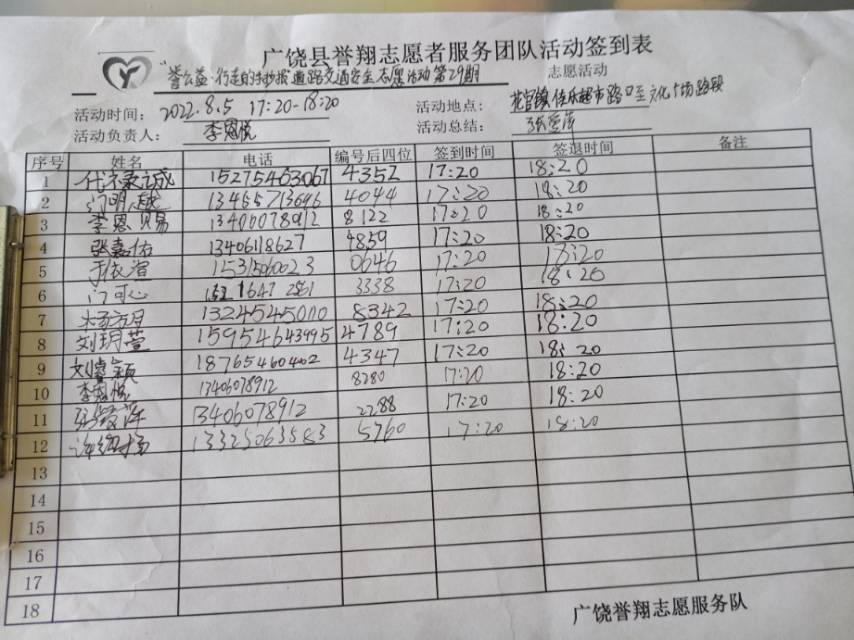 广饶县誉翔志愿者服务团队活动签到表
誉公益·行走的手抄报道路交通安全志愿活动第29期 志愿活动
活动时间: 2022.8.5 17:20-18:20 活动地点: 花官镇佳乐超市路口至文化广场路段
活动负责人: 李恩悦 活动总结:
序号 姓名 电话 编号后四位 签到时间 签退时间 备注
1 15275463067 4352 17:20 18:20
2 门明越 13455713696 4044 17:20 18:20
3 李恩贤 13406078912 8122 17:20 18:20
4 张嘉佑 13406118627 4859 17:20 18:20
5 于依諮 15315060023 0646 17:20 18:20
6 门可心 3338 17:20 18:20
7 杨方月 13245045010 8342 17:20 18:20
8 刘玥萱 15954643995 4789 17:20 18:20
9 刘睿颖 18765460402 4347 17:20 18:20
10 李恩悦 13406078912 8280 17:20 18:20
11 13406078912 2288 17:20 18:20
12 13325063583 5760 17:20 18:20
13
14
15
16
17
18
广饶誉翔志愿服务队